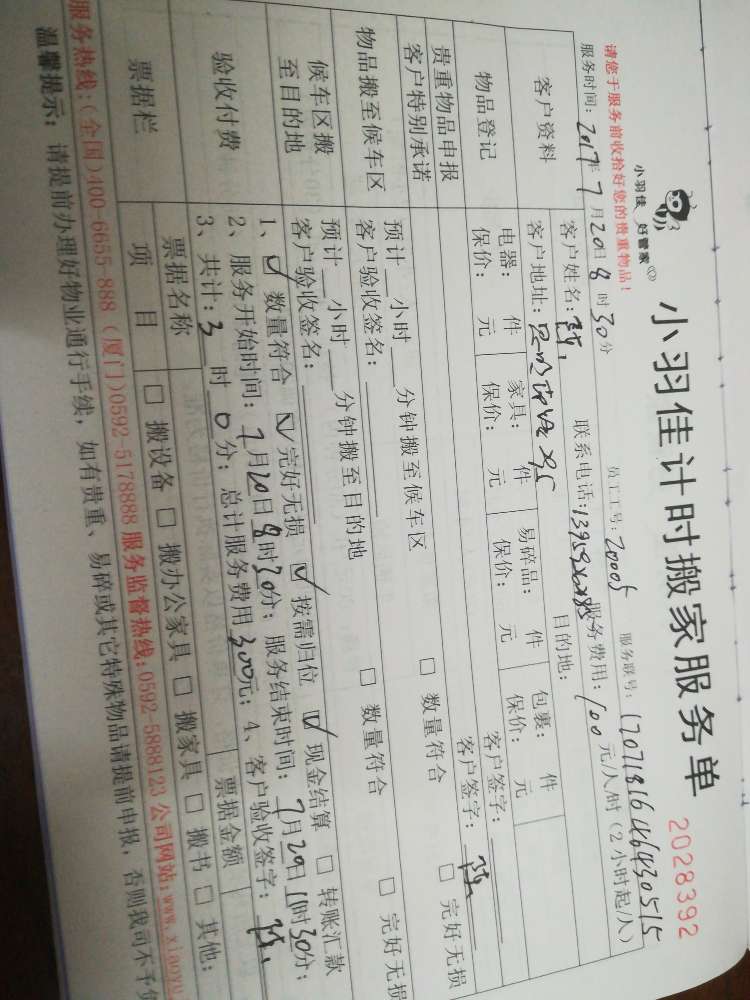 小羽佳 好管家
小羽佳计时搬家服务单
2028392
请您于服务前收拾好您的贵重物品！
员工工号：20005 服务联号：
服务时间：2017年7月20日8时30分 服务费用：100元/人/时（2小时起/人）
客户资料
客户姓名：陈 联系电话：
客户地址： 目的地：
物品登记
电器： 件 家具： 件 易碎品： 件 包裹： 件
保价： 元 保价： 元 保价： 元 保价： 元
客户签字：
贵重物品申报
客户特别承诺
客户签字：陈
物品搬至候车区
预计 小时 分钟搬至候车区
客户验收签名： □ 数量符合 □ 完好无损
候车区搬
至目的地
预计 小时 分钟搬至目的地
客户验收签名： □ 数量符合 □ 完好无损
验收付费
1、☑ 数量符合 ☑ 完好无损 ☑ 按需归位 ☑ 现金结算 □ 转账汇款
2、服务开始时间：7月20日8时30分；服务结束时间：7月20日11时30分；
3、共计：3时0分；总计服务费用300元；4、客户验收签字：陈
票据栏
票据名称 票据金额
项 目 □ 搬设备 □ 搬办公家具 □ 搬家具 □ 搬书 □ 其他：
服务热线：（全国）400-6655-888（厦门）0592-5178888 服务监督热线：0592-5888123 公司网站：www.xiaoyu
温馨提示：请提前办理好物业通行手续，如有贵重、易碎或其它特殊物品请提前申报，否则我司不予